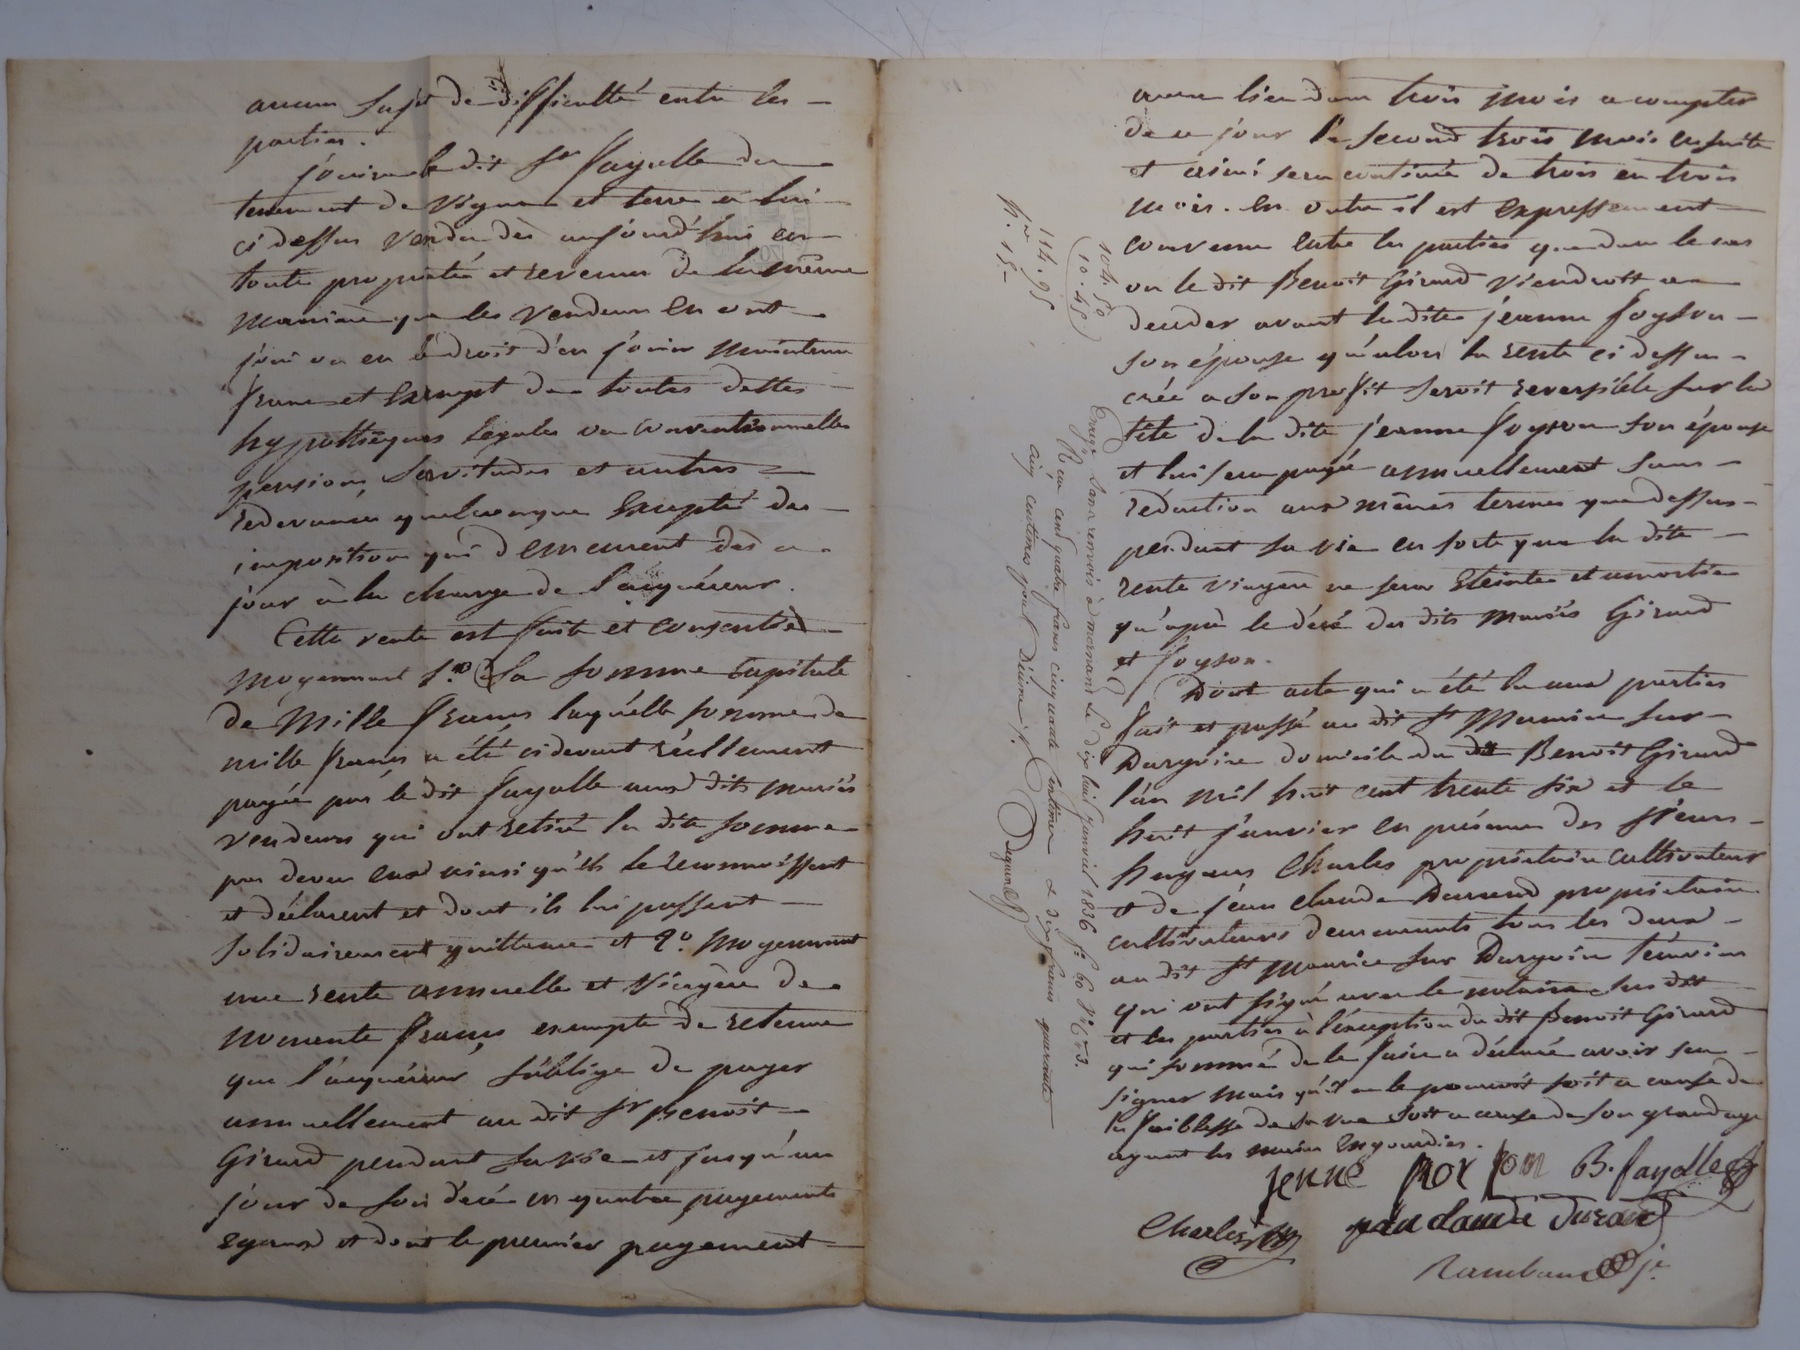 aucun sujet de difficulté entre les
parties.
jouira le dit Sr fayolle du
tenement de vigne et terre à lui
ci dessus vendu dès aujourd'hui en
toute propriété et revenu de la même
manière que les vendeurs en ont
joui ou eu le droit d'en jouir maintenu
franc et exempt de toutes dettes
hypothèques légales ou conventionnelles
pensions, servitudes et autres
redevances quelconque excepté des
imposition qui demeurent dès ce
jour à la charge de l'acquéreur.
Cette vente est faite et consentie
moyennant 1.° la somme capitale
de Mille francs laquelle somme de
mille francs a été cidevant réellement
payée par le dit fayolle aux dits mariés
vendeurs qui ont retiré la dite somme
par devers eux ainsi qu'ils le reconnoissent
et déclarent et dont ils lui passent
solidairement quittance et 2.° moyennant
une rente annuelle et viagère de
nonante francs exempte de retenue
que l'acquéreur s'oblige de payer
annuellement au dit Sr Benoit
Girard pendant sa vie et jusqu'au
jour de son décé en quatre payements
égaux et dont le premier payement
aura lieu dans trois mois a compter
de ce jour le second trois mois ensuite
et ainsi sera continué de trois en trois
mois. en outre il est expressement
convenu entre les parties que dans le cas
ou le dit Benoit Girard viendroit a
deceder avant la dite jeanne foyson
son épouse qu'alors la rente ci dessus
créé a son profit seroit reversible sur la
tête de la dite jeanne foyson son épouse
et lui sera payée annuellement sans
réduction aux mêmes termes que dessus
pendant sa vie en sorte que la dite
rente viagère ne sera éteinte et amortie
qu'après le décé des dits mariés Girard
et foyson.
Dont acte qui a été lu aux parties
fait et passé au dit St Maurice sur
Dargoire domicile du dit Benoit Girard
l'an mil huit cent trente six et le
huit janvier en présence des sieurs
hugues Charles propriétaire cultivateur
et de jean claude Durand propriétaire
cultivateurs demeurants tous les deux
au dit St Maurice sur Dargoire témoins
qui ont signé avec le notaire sus dit
et les parties à l'exception du dit Benoit Girard
qui sommé de le faire a déclaré avoir su
signer mais qu'il ne le pouvoit soit a cause de
la faiblesse de sa vue soit a cause de son grand age
ayant les mains engourdies.
jenne foy son B. fayolle
Charles jean claude durand
Rambaud
104. 50
10. 45
114. 95
Enrgé. sans renvois à mornant le dix huit janvier 1836 f° 60
Reçu cent quatre francs cinquante centimes & dix francs quarante
cinq centimes pour Décime